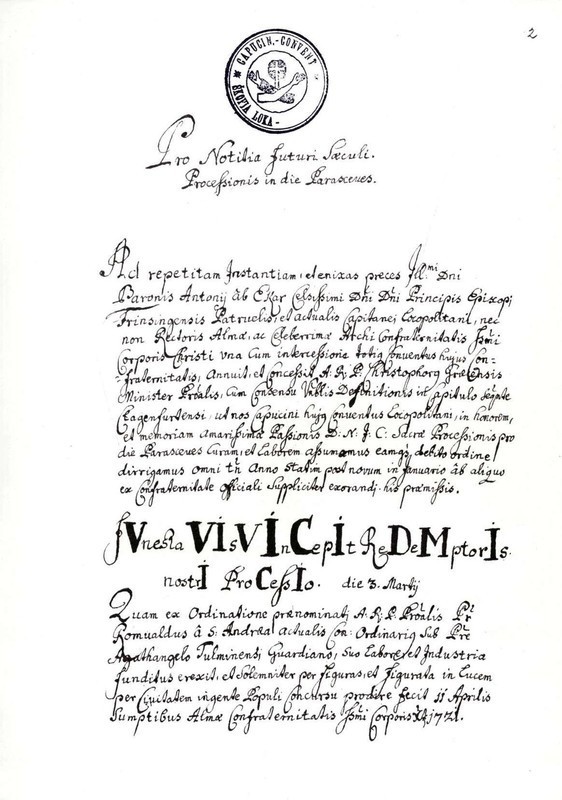 2
CAPUCIN.-CONVENT
ŠKOFJA LOKA-
Pro Notitia futuri Sæculi.
Processionis in die Parasceues.
Ad repetitam Instantiam, et enixas preces Ill:mi Dni
Baronis Antonij ab Ekar Celsissimi Dni Dni Principis Episcopi
Frinsingensis Patruelis, et actualis Capitanei Locopolitani, nec
non Rectoris Almæ, ac Celeberrimæ Archi Confraternitatis Ssmi
Corporis Christi una Cum intercessione totiq Conventus hujus Con-
-fraternitatis, Annuit, et Concessit A. R. P. Christophorq
Minister Prõalis, Cum Consensu Definitionis in Capitulo
Clagenfurtensi, ut nos Capucini hujq Conventus Locopolitani, in honorem,
et memoriam amarissimæ Passionis D: N: J: C: Sacræ Processionis pro
die Parasceues Curam, et laborem assumamus eamq, debito ordine
dirrigamus omni tñ Anno statim post novum in Januario ab aliquo
ex Confraternitate officiali Suppliciter exorandj. his præmissis.
fVnesta VIsVInCepIt ReDeMptorIs.
nostrI ProCessIo. die 3. Martij
Quam ex Ordinatione prænominatj A. R. P. Prõalis Pr
Romualdus â S: Andrea actualis Con: Ordinariq Sub Pre
Agathangelo Tulminensi Guardiano, Suo Labore, et Industria
funditus erexit, et Solemniter per figuras, et figurata in Lucem
per Civitatem ingente Populi Concursu prodire fecit 11 Aprilis
Sumptibus Almæ Confraternitatis Ssmi Corporis 1721.